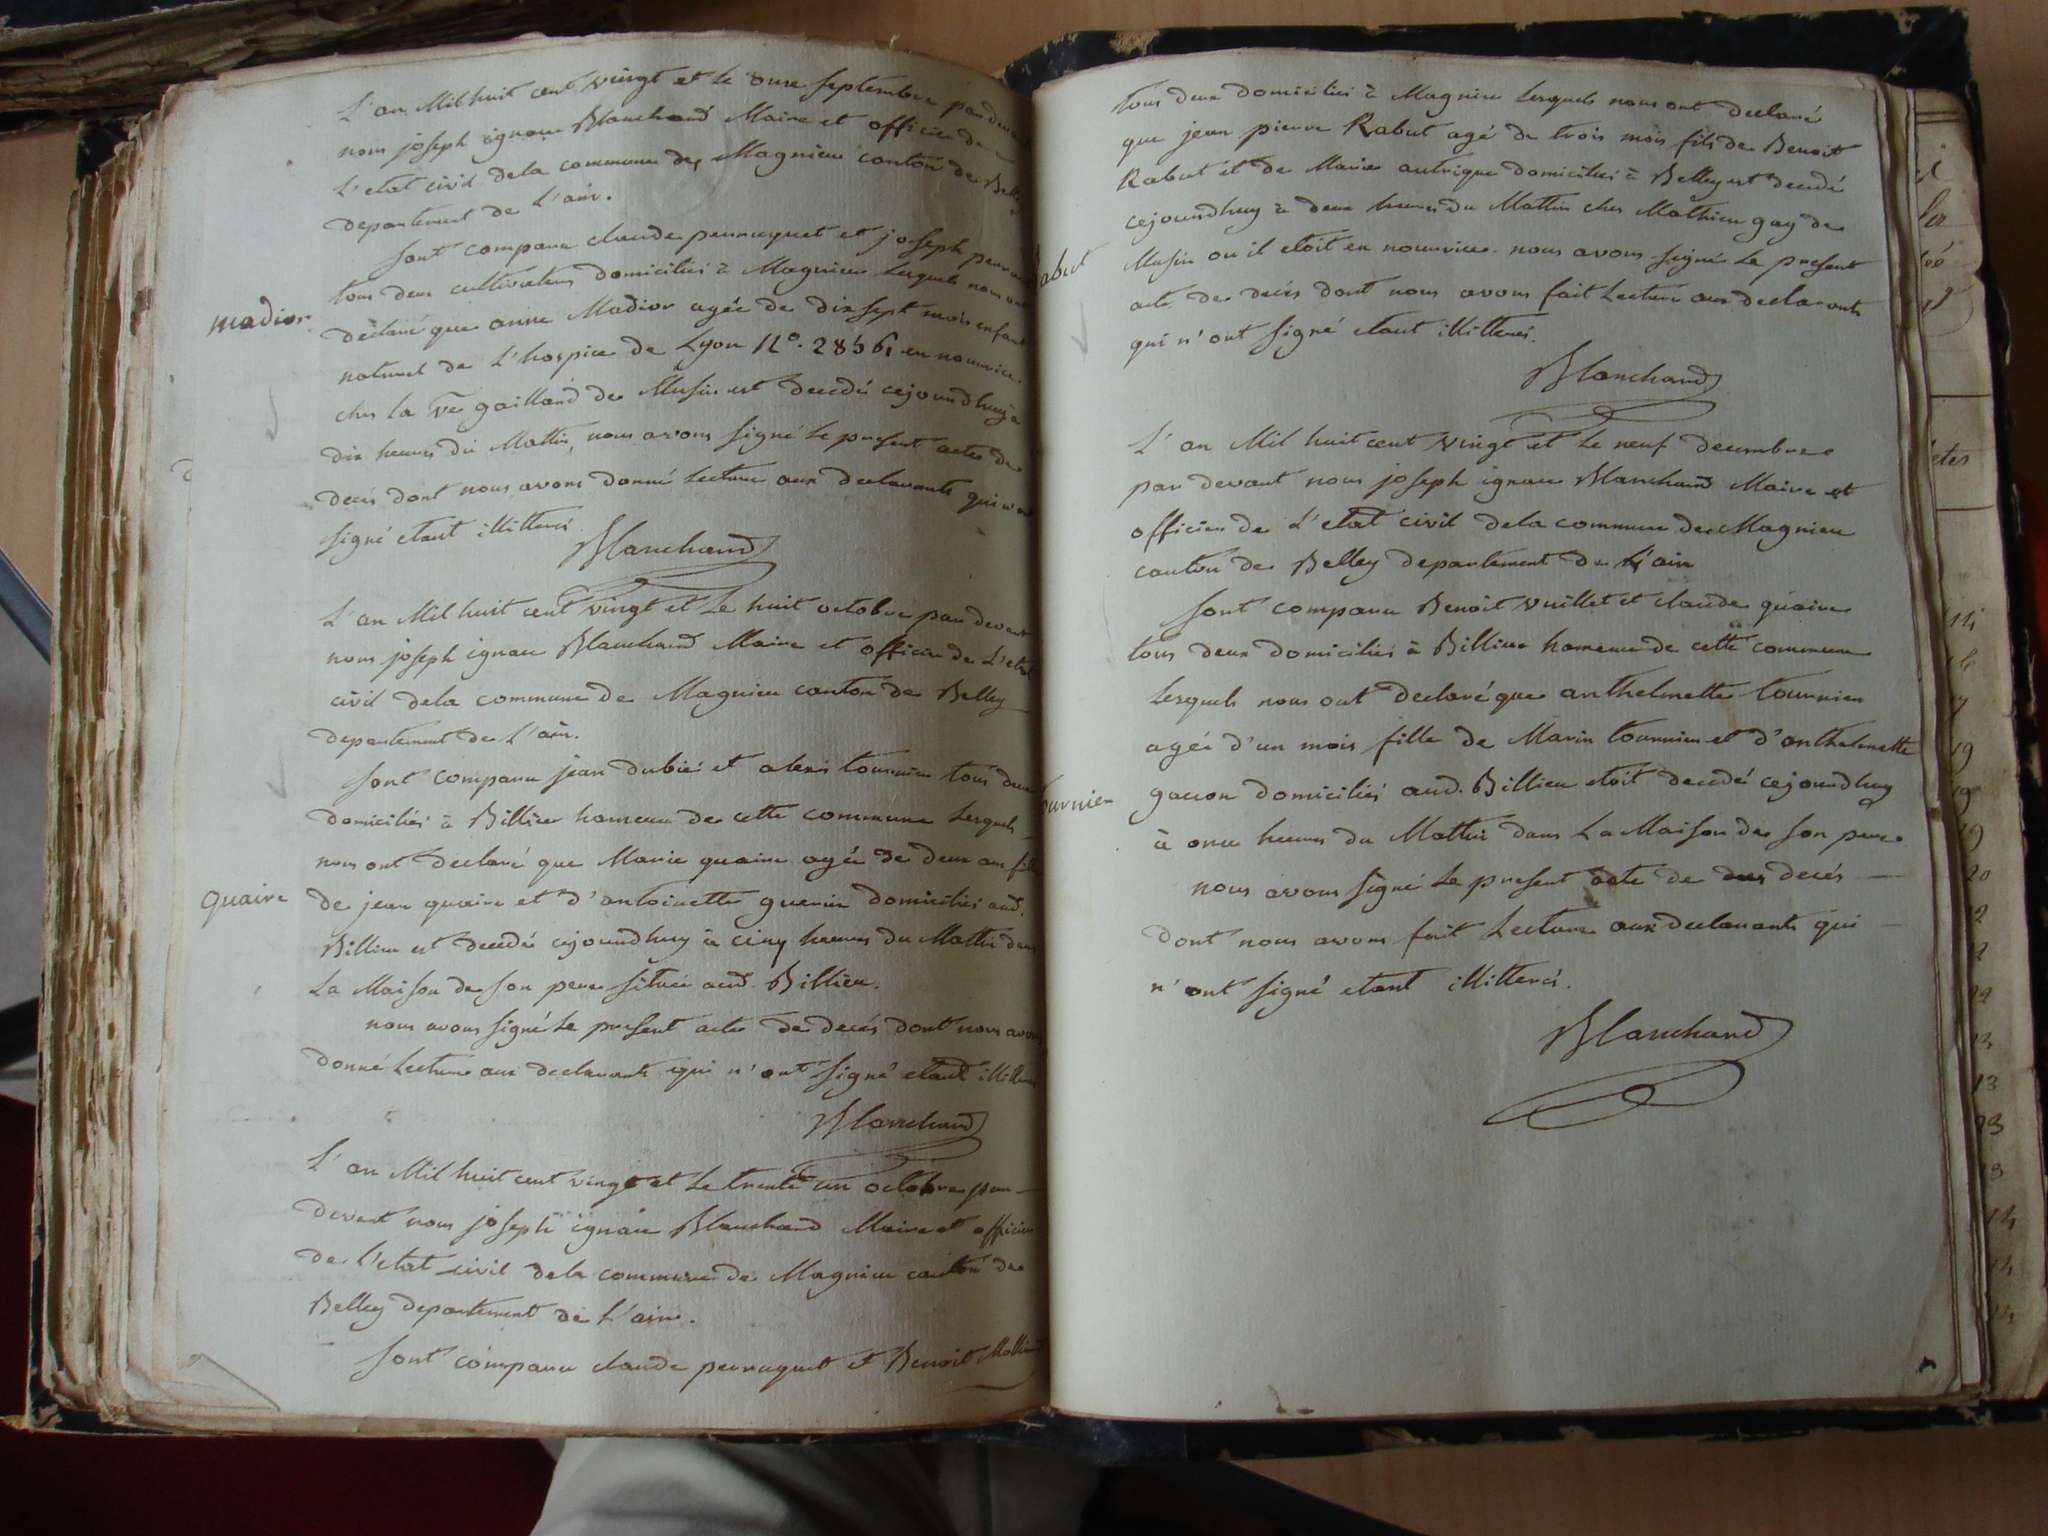 L'an Mil huit cent vingt et le onze septembre par devant
nous joseph ignace Blanchard Maire et officier de
L'etat civil dela commune de Magnieu canton de Belley
departement de L'ain.
Sont comparu claude perruquet et joseph
tous deux cultivateurs domiciliés à Magnieu Lesquels nous ont
madior
declaré que anne Madior agée de dix sept mois enfant
naturel de L'hospice de Lyon N°. en nourrice
chez la ve gaillard de Musin est decedé cejourdhuy à
dix heures du Mattin, nous avons signé le present acte de
decés dont nous avons donné Lecture aux declarants qui n'ont
signé etant illitterés
Blanchard
L'an Mil huit cent vingt et Le huit octobre par devant
nous joseph ignace Blanchard Maire et officier de L'etat
civil dela commune de Magnieu canton de Belley
departement de L'ain.
Sont comparu jean dubié et alexis tournier tous deux
domiciliés à Billieu hameau de cette commune Lesquels
nous ont declaré que Marie quaire agée de deux ans fille
quaire
de jean quaire et d'antoinette guerin domiciliés aud.
Billieu est decedée cejourdhuy à cinq heures du Mattin dans
La Maison de son pere située aud. Billieu.
nous avons signé Le present acte de decés dont nous avons
donné Lecture aux declarants qui n'ont signé etant illitterés
Blanchard
L'an Mil huit cent vingt et Le trente un octobre par
devant nous joseph ignace Blanchard Maire et officier
de l'etat civil dela commune de Magnieu canton de
Belley departement de L'ain.
Sont comparu claude perruquet et Benoit
tous deux domiciliés à Magnieu Lesquels nous ont declaré
que jean pierre Rabut agé de trois mois fils de Benoit
Rabut et de Marie autrique domiciliés à Belley est decedé
cejourdhuy à deux heures du Mattin chez Mathieu gay de
Rabut
Musin ou il etoit en nourrice. nous avons signé Le present
acte de decés dont nous avons fait Lecture aux declarants
qui n'ont signé etant illitterés.
Blanchard
L'an Mil huit cent vingt et Le neuf decembre
par devant nous joseph ignace Blanchard Maire et
officier de L'etat civil dela commune de Magnieu
canton de Belley departement de L'ain
Sont comparu Benoit vuillet et claude quaire
tous deux domiciliés à Billieu hameau de cette commune
Lesquels nous ont declaré que anthelmette tournier
agée d'un mois fille de Marin tournier et d'anthelmette
tournier
domiciliés aud. Billieu etoit decedée cejourdhuy
à onze heures du Mattin dans La Maison de son pere
nous avons signé Le present acte de decés
dont nous avons fait Lecture aux declarants qui
n'ont signé etant illitterés.
Blanchard